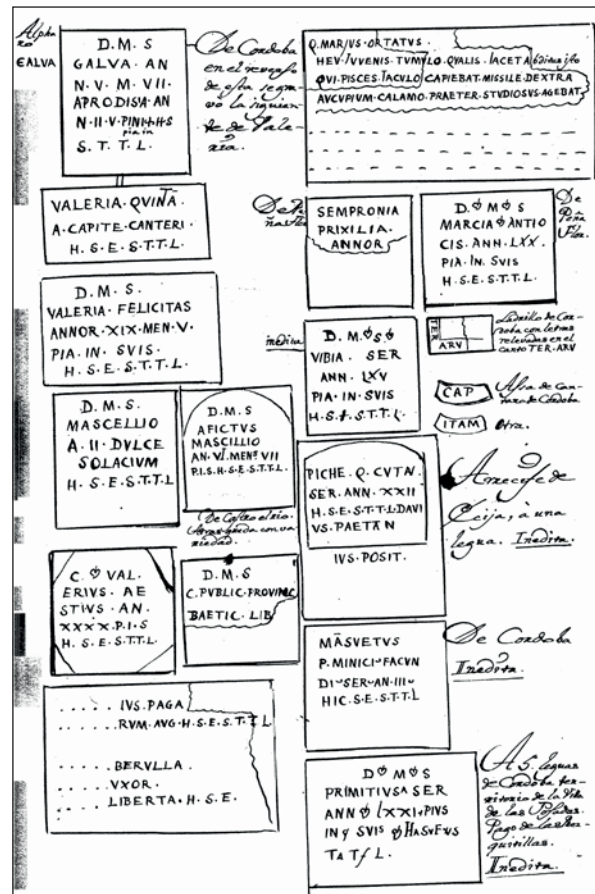 Alpha
ro
GALVA
D. M. S
GALVA · AN
N · V · M · VII ·
APRODISA · AN
N · II · V · PINI + H S
pia in
S. T. T. L.
De Cordoba
en el
de esta
vo la siguien
te de Vale
ria.
Q. MARIUS · ORTATUS ·
HEV · IUVENIS · TUMVLO · QVALIS · IACET A
QVI · PISCES · IACULO CAPIEBAT · MISSILE · DEXTRA
AVCVPIVM · CALAMO · PRAETER · STVDIOSVS · AGEBAT
VALERIA · QVINTA
A · CAPITE · CANTERI ·
H. S · E · S · T · T · L.
SEMPRONIA
PRIXILIA ·
ANNOR
D. M S
MARCIA ANTIO
CIS · ANN · LXX ·
PIA · IN · SVIS
H · S · E · S · T · T · L.
De
Peña
Flor.
D. M. S.
VALERIA · FELICITAS
ANNOR · XIX · MEN · V ·
PIA · IN · SVIS.
H · S · E · S · T · T · L.
inedita
D. M. S
VIBIA . SER
ANN · LXV
PIA · IN · SVIS
H · S · S · T · T · L
TER
ARV
Ladrillo de Cor
doba con letras
relevadas en el
canto TER · ARV
CAP
Asa de Can
tara de Cordoba
ITAM
Otra.
D. M. S.
MASCELLIO
A · II · DVLCE
SOLACIVM
H · S · E · S · T · T · L
D · M · S
AFICTVS
MASCILLIO
AN · VI · MENS VII
P. I. S · H · S · E · S · T · T · L.
De Castro el rio.
con va
riedad.
PICHE · Q · CVTN ·
SER · ANN · XXII
H · S · E · S · T · T · L · DAVI
VS · PAETAN
IVS · POSIT ·
Arrecife de
Ecija, à una
legua. Inedita.
C. VAL ·
ERIVS · AE
STIVS · AN ·
XXXX · P · I · S
H · S · E · S · T · T · L.
D. M. S
C. PVBLIC · PROVINC
BAETIC · LIB
MASVETVS
P. MINICI FACVN
DI SER AN III
HIC · S · E · S · T · T · L
De Cordoba
Inedita.
. . . . . IVS · PAGA
. . . . . RVM · AVG · H · S · E · S · T · T L
. . . . . BERVLLA ·
. . . . . VXOR ·
. . . . . LIBERTA · H · S · E ·
D M S
PRIMITIVSA SER
ANN LXXI · PIVS
IN SVIS
TA T L ·
A 5 leguas
de Cordoba ter
ritorio de la Villa
de las Posadas.
Pago de las
Inedita.